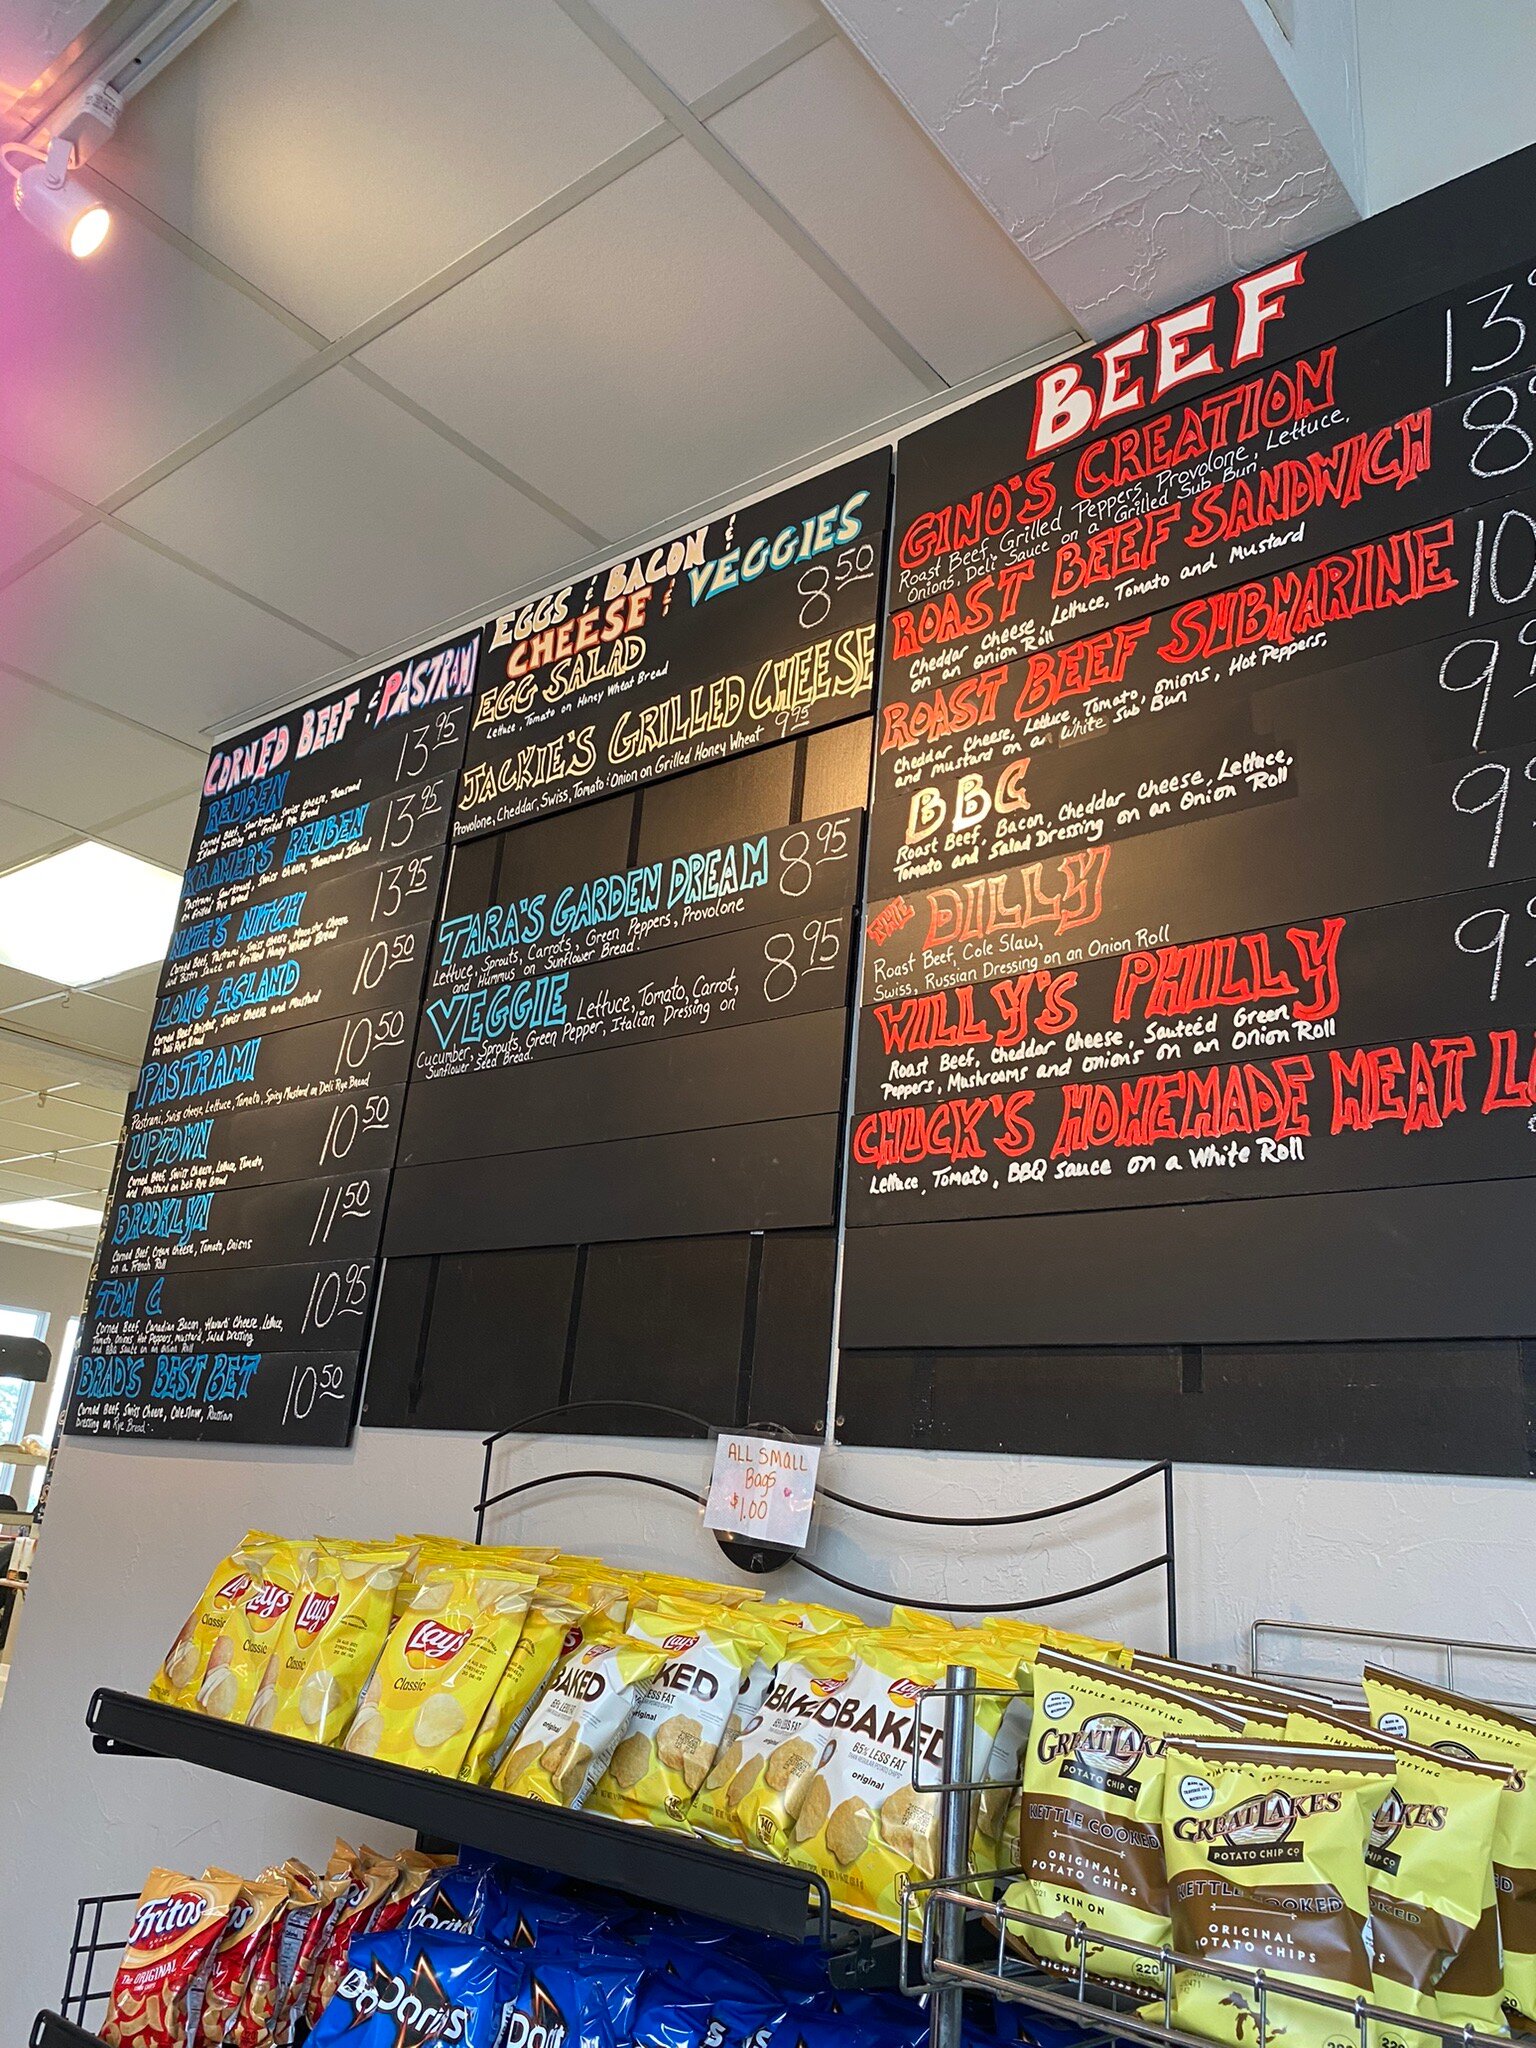 CORNED BEEF & PASTRAMI
REUBEN 13 95
Corned Beef, Saurkraut, Swiss Cheese, Thousand
Island Dressing on Grilled Rye Bread
KRAMER'S REUBEN 13 95
Pastrami, Saurkraut, Swiss Cheese, Thousand Island
on Grilled Rye Bread
NATE'S NITCH 13 95
Corned Beef, Pastrami, Swiss Cheese, Muenster Cheese
and Bistro Sauce on Grilled Honey Wheat Bread
LONG ISLAND 10 50
Corned Beef Brisket, Swiss Cheese and Mustard
on Deli Rye Bread
PASTRAMI 10 50
Pastrami, Swiss Cheese, Lettuce, Tomato, Spicy Mustard on Deli Rye Bread
UPTOWN 10 50
Corned Beef, Swiss Cheese, Lettuce, Tomato,
and Mustard on Deli Rye Bread
BROOKLYN 11 50
Corned Beef, Cream Cheese, Tomato, Onions
on a French Roll
TOM C 10 95
Corned Beef, Canadian Bacon, Havarti Cheese, Lettuce,
Tomato, Onions, Hot Peppers, Mustard, Salad Dressing
and BBQ Sauce on an Onion Roll
BRAD'S BEST BET 10 50
Corned Beef, Swiss Cheese, Coleslaw, Russian
Dressing on Rye Bread.
EGGS & BACON &
CHEESE & VEGGIES
EGG SALAD 8 50
Lettuce, Tomato on Honey Wheat Bread
JACKIE'S GRILLED CHEESE
Provolone, Cheddar, Swiss, Tomato & Onion on Grilled Honey Wheat 9 95
TARA'S GARDEN DREAM 8 95
Lettuce, Sprouts, Carrots, Green Peppers, Provolone
and Hummus on Sunflower Bread.
VEGGIE Lettuce, Tomato, Carrot, 8 95
Cucumber, Sprouts, Green Pepper, Italian Dressing on
Sunflower Seed Bread.
BEEF
GINO'S CREATION 13
Roast Beef, Grilled Peppers, Provolone, Lettuce,
Onions, Deli Sauce on a Grilled Sub Bun.
ROAST BEEF SANDWICH 8
Cheddar Cheese, Lettuce, Tomato and Mustard
on an Onion Roll
ROAST BEEF SUBMARINE 10
Cheddar Cheese, Lettuce, Tomato, Onions, Hot Peppers,
and Mustard on a White Sub Bun
BBC 9
Roast Beef, Bacon, Cheddar Cheese, Lettuce,
Tomato and Salad Dressing on an Onion Roll
THE DILLY 9
Roast Beef, Cole Slaw,
Swiss, Russian Dressing on an Onion Roll
WILLY'S PHILLY 9
Roast Beef, Cheddar Cheese, Sauteéd Green
Peppers, Mushrooms and Onions on an Onion Roll
CHUCK'S HOMEMADE MEAT
Lettuce, Tomato, BBQ Sauce on a White Roll
ALL SMALL
Bags
$1.00
Lay's
Classic
Lay's
Classic
Lay's
Classic
Lay's
Classic
BAKED
65% LESS FAT
original
Lay's
BAKED
original
BAKED
original
Lay's
BAKED
65% LESS FAT
original
SIMPLE & SATISFYING
GREAT LAKES
POTATO CHIP CO
KETTLE COOKED
ORIGINAL
POTATO CHIPS
SKIN ON
SIMPLE & SATISFYING
GREAT LAKES
POTATO CHIP CO
KETTLE COOKED
ORIGINAL
POTATO CHIPS
220
SIMPLE & SATISFYING
Fritos
The ORIGINAL
Doritos
Doritos